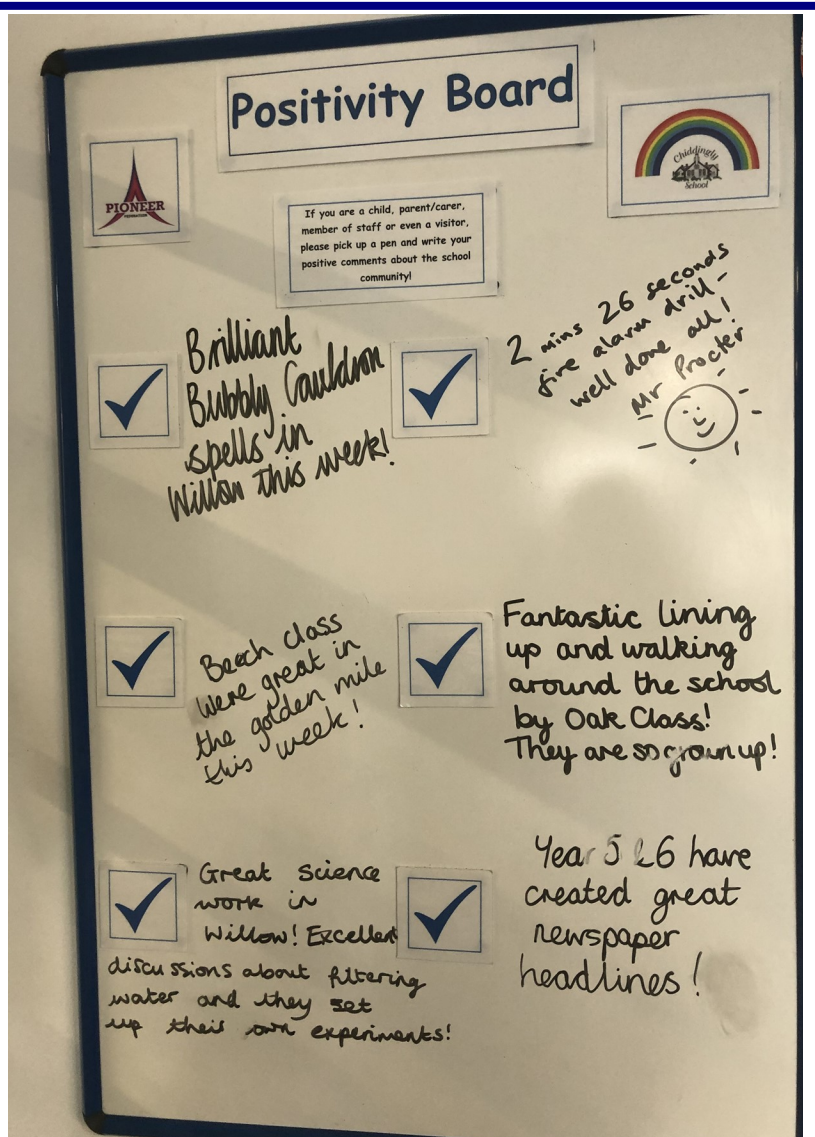 Positivity Board
PIONEER
FEDERATION
Chiddingly
School
If you are a child, parent/carer,
member of staff or even a visitor,
please pick up a pen and write your
positive comments about the school
community!
Brilliant
Bubbly Cauldron
spells in
Willow this week!
2 mins 26 seconds
fire alarm drill -
well done all!
Mr Procter
Beech class
were great in
the golden mile
this week!
Fantastic lining
up and walking
around the school
by Oak Class!
They are so grown up!
Great science
work in
Willow! Excellent
discussions about filtering
water and they set
up their own experiments!
Year 5 & 6 have
created great
newspaper
headlines!